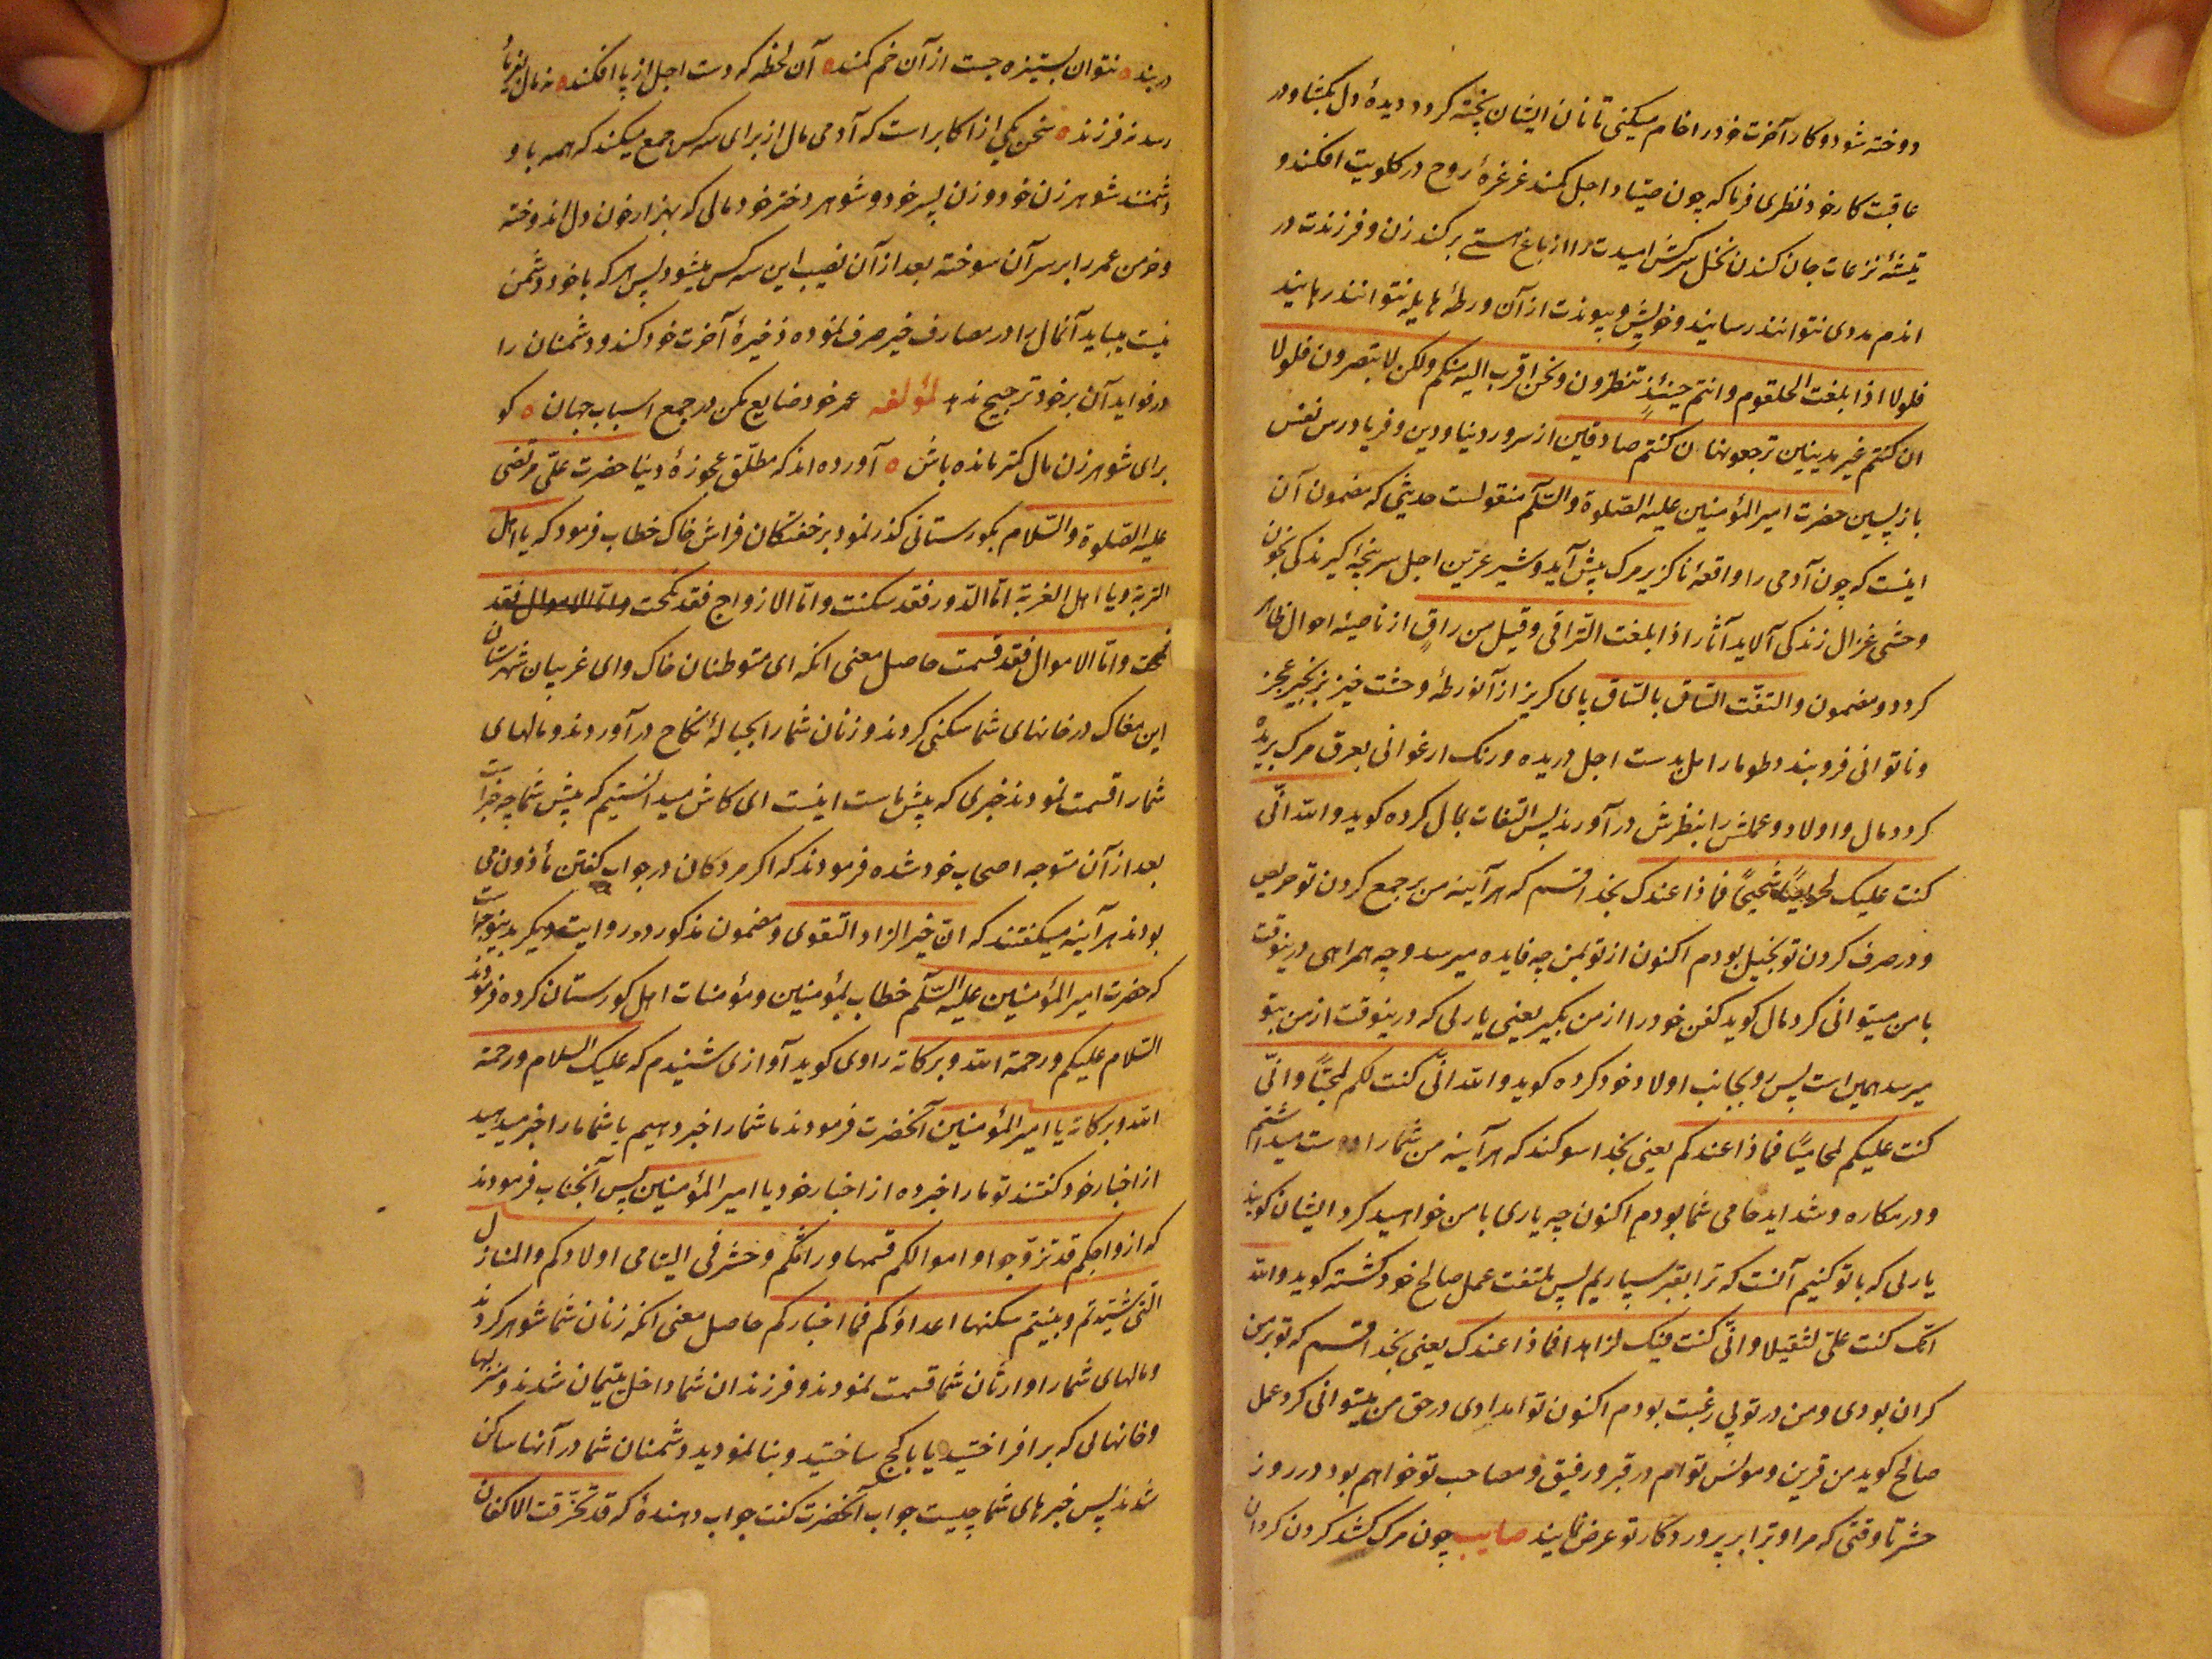 دوخته شود و کار آخرت خود را خام میکنی تا نان ایشان پخته کردد دیدهٔ دل بکشا و در
عاقبت کار خود نظری فرما که چون صیّاد اجل کمند غرغرهٔ روح در کلویت افکند و
تیشهٔ نزعات جان کندن نخل سرکش امیدت را از باغ هستے برکند زن و فرزندت در
اندم مددی نتوانند رسانید و خویش و پیوندت از آن ورطهٔ هایله نتوانند رهانید
فلولا اذا بلغت الحلقوم و انتم حینئذٍ تنظرون و نحن اقرب الیه منکم ولکن لا تبصرون فلولا
ان کنتم غیر مدینین ترجعونها ان کنتم صادقین از سرور دنیا و دین و فریادرس نفس
بازپسین حضرت امیر المؤمنین علیه الصّلوة والسّلم منقولست حدیثی که مضمون آن
اینست که چون آدمی را واقعهٔ ناکزیر مرک پیش آید و شیر عرین اجل سرپنجهٔ کیرندکی بخون
وحشی غزال زندکی آلاید آثار اذا بلغت التّراقی و قیل من راقٍ از ناصیهٔ احوال ظاهر
کردد و مضمون والتفّت السّاق بالسّاق پای کریز از آنورطهٔ وحشت خیز بزنجیر عجز
و ناتوانی فروبندد و طومار امل بدست اجل دریده و رنک ارغوانی بعرق مرک بریده
کردد مال و اولاد و عملش را بنظرش در آورند پس التفات بمال کرده کوید والله انّی
کنت علیک لحریصًا شحیحًا فماذا عندک بخدا قسم که هر آینه من بر جمع کردن تو حریص
و در صرف کردن تو بخیل بودم اکنون از تو بمن چه فایده میرسد و چه همراهی درینوقت
با من میتوانی کرد مال کوید کفن خود را از من بکیر یعنی یارئی که درینوقت از من بتو
میرسد همین است پس رو بجانب اولاد خود کرده کوید والله انّی کنت لکم لمحبًّا و انّی
کنت علیکم لمحامیًا فماذا عندکم یعنی بخدا سوکند که هر آینه من شما را دوست میداشتم
و در مکاره و شداید حامی شما بودم اکنون چه یاری با من خواهید کرد ایشان کویند
یارئی که با تو کنیم آنست که ترا بقبر سپاریم پس ملتفت عمل صالح خود کشته کوید والله
انّک کنت علیّ لثقیلا و انّی کنت فیک لزاهدا فماذا عندک یعنی بخدا قسم که تو بر من
کران بودی و من در تو بی رغبت بودم اکنون تو امدادی در حق من میتوانی کرد عمل
صالح کوید من قرین و مونس توام در قبر و رفیق و مصاحب تو خواهم بود در روز
حشر تا وقتی که مرا و ترا بر پروردکار تو عرض نمایند صایب چون مرک کشد کردن کردان
دربند نتوان بستیزه جست از آن خم کمند آن لحظه که دست اجل از پا افکند نه مال بفریاد
رسد نه فرزند سخن یکی از اکابر است که آدمی مال از برای سه کس جمع میکند که همه با او
دشمنند شوهر زن خود و زن پسر خود و شوهر دختر خود مالی که بهزار خون دل اندوخته
و خرمن عمر را بر سر آن سوخته بعد از آن نصیب این سه کس میشود پس هر که با خود دشمن
نیست میباید آنمال را در مصارف خیر صرف نموده ذخیرهٔ آخرت خود کند و دشمنان را
در فواید آن بر خود ترجیح ندهد لمؤلفه عمر خود ضایع مکن در جمع اسباب جهان کو
برای شوهر زن مال کمتر مانده باش آورده اند که مطلّق عجوزهٔ دنیا حضرت علیّ مرتضی
علیه الصّلوة والسّلام بکورستانی کذر نمود بر خفتکان فراش خاک خطاب فرمود که یا اهل
التربة و یا اهل الغربة امّا الدّور فقد سکنت و امّا الازواج فقد نکحت و امّا الاموال فقد
نکحت و امّا الاموال فقد قسمت حاصل معنی آنکه ای متوطنان خاک و ای غریبان شهرستان
این مغاک در خانهای شما سکنی کردند و زنان شما را بحبالهٔ نکاح در آوردند و مالهای
شما را قسمت نمودند خبری که پیش ماست اینست ای کاش میدانستیم که پیش شما چه خبر است
بعد از آن متوجه اصحاب خود شده فرمودند که اکر مردکان در جواب کفتن مأذون می
بودند هر آینه میکفتند که انّ خیر الزاد التقوی و مضمون مذکور در روایت دیکر بدینوجه است
که حضرت امیر المؤمنین علیه السّلم خطاب بمؤمنین و مؤمنات اهل کورستان کرده فرمودند
السّلام علیکم و رحمة الله و برکاته راوی کوید آوازی شنیدم که علیک السلام و رحمة
الله و برکاته یا امیر المؤمنین آنحضرت فرمودند ما شما را خبر دهیم یا شما ما را خبر میدهید
از اخبار خود کفتند تو ما را خبر ده از اخبار خود یا امیر المؤمنین پس آنجناب فرمودند
که ازواجکم قد تزوّجوا و اموالکم قسمها وراثکم و حشر فی الیتامی اولادکم و المنازل
الّتی شیّدتم و بنیتم سکنها اعداؤکم فما اخبارکم حاصل معنی آنکه زنان شما شوهر کردند
و مالهای شما را وارثان شما قسمت نمودند و فرزندان شما داخل یتیمان شدند و منزلها
و خانهائی که برافراختید یا با کچ ساختید و بنا نمودید دشمنان شما در آنها ساکن
شدند پس خبرهای شما چیست جواب آنحضرت کفت جواب دهندهٔ که قد تخرّقت الاکفان